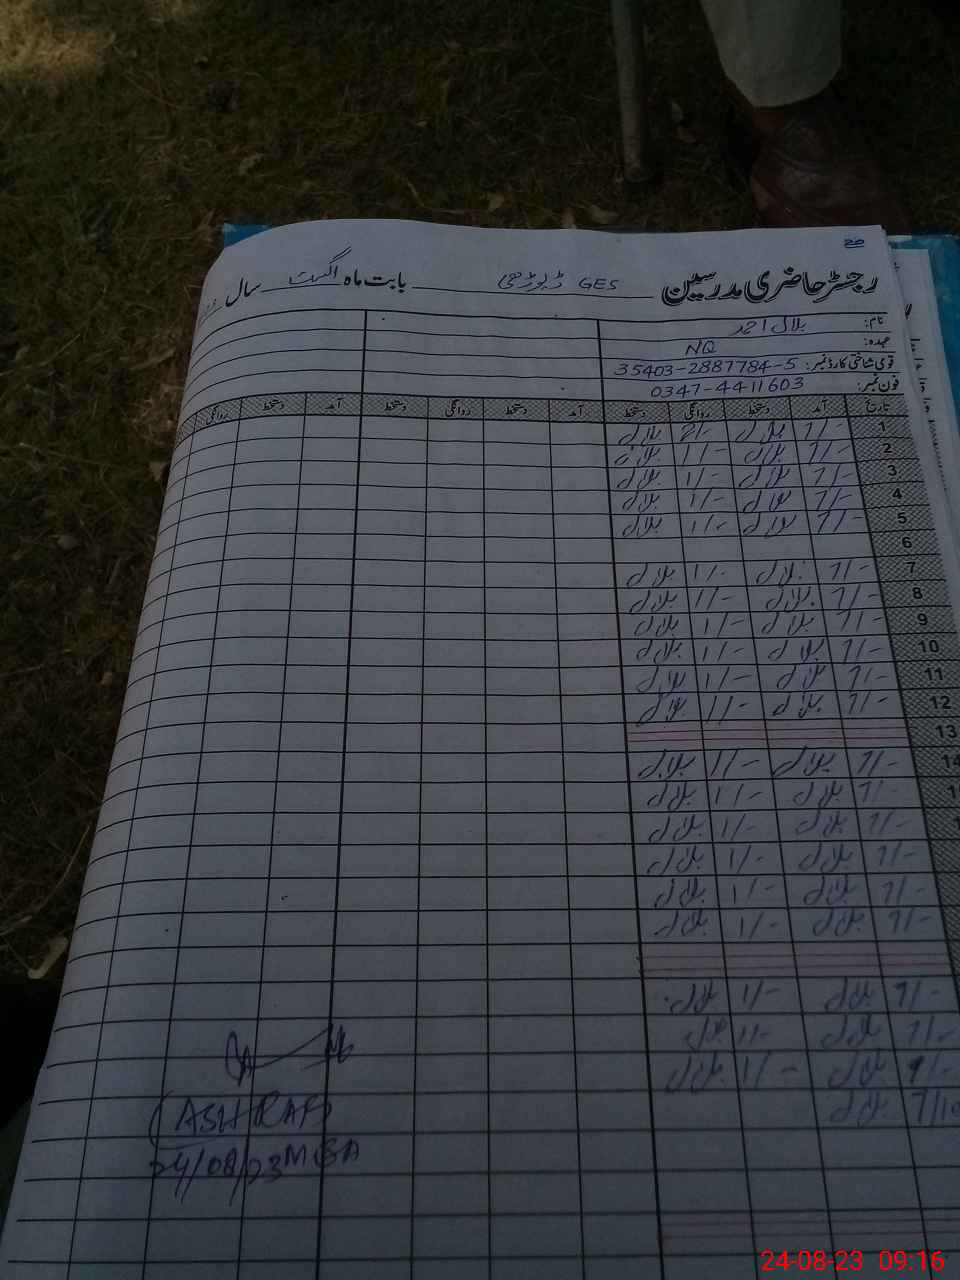 20
رجسٹر حاضری مدرسین GES ڈیوڑھی بابت ماہ اگست سال
نام: بلال احمد
عہدہ: NQ
قومی شناختی کارڈ نمبر: 35403-2887784-5
فون نمبر: 0347-4411603
تاریخ آمد دستخط روانگی دستخط آمد دستخط روانگی دستخط آمد دستخط روانگی
1 7/- بلال 2/- بلال
2 7/- بلال 1/- بلال
3 7/- بلال 1/- بلال
4 7/- بلال 1/- بلال
5 7/- بلال 1/- بلال
6
7 7/- بلال 1/- بلال
8 7/- بلال 1/- بلال
9 7/- بلال 1/- بلال
10 7/- بلال 1/- بلال
11 7/- بلال 1/- بلال
12 7/- بلال 1/- بلال
13
14 7/- بلال 1/- بلال
7/- بلال 1/- بلال
7/- بلال 1/- بلال
7/- بلال 1/- بلال
7/- بلال 1/- بلال
7/- بلال 1/- بلال
7/- بلال 1/- بلال
7/- بلال 1/- بلال
7/- بلال 1/- بلال
7/10 بلال
(ASHRAF)
24/08/23 MEA
24-08-23 09:16